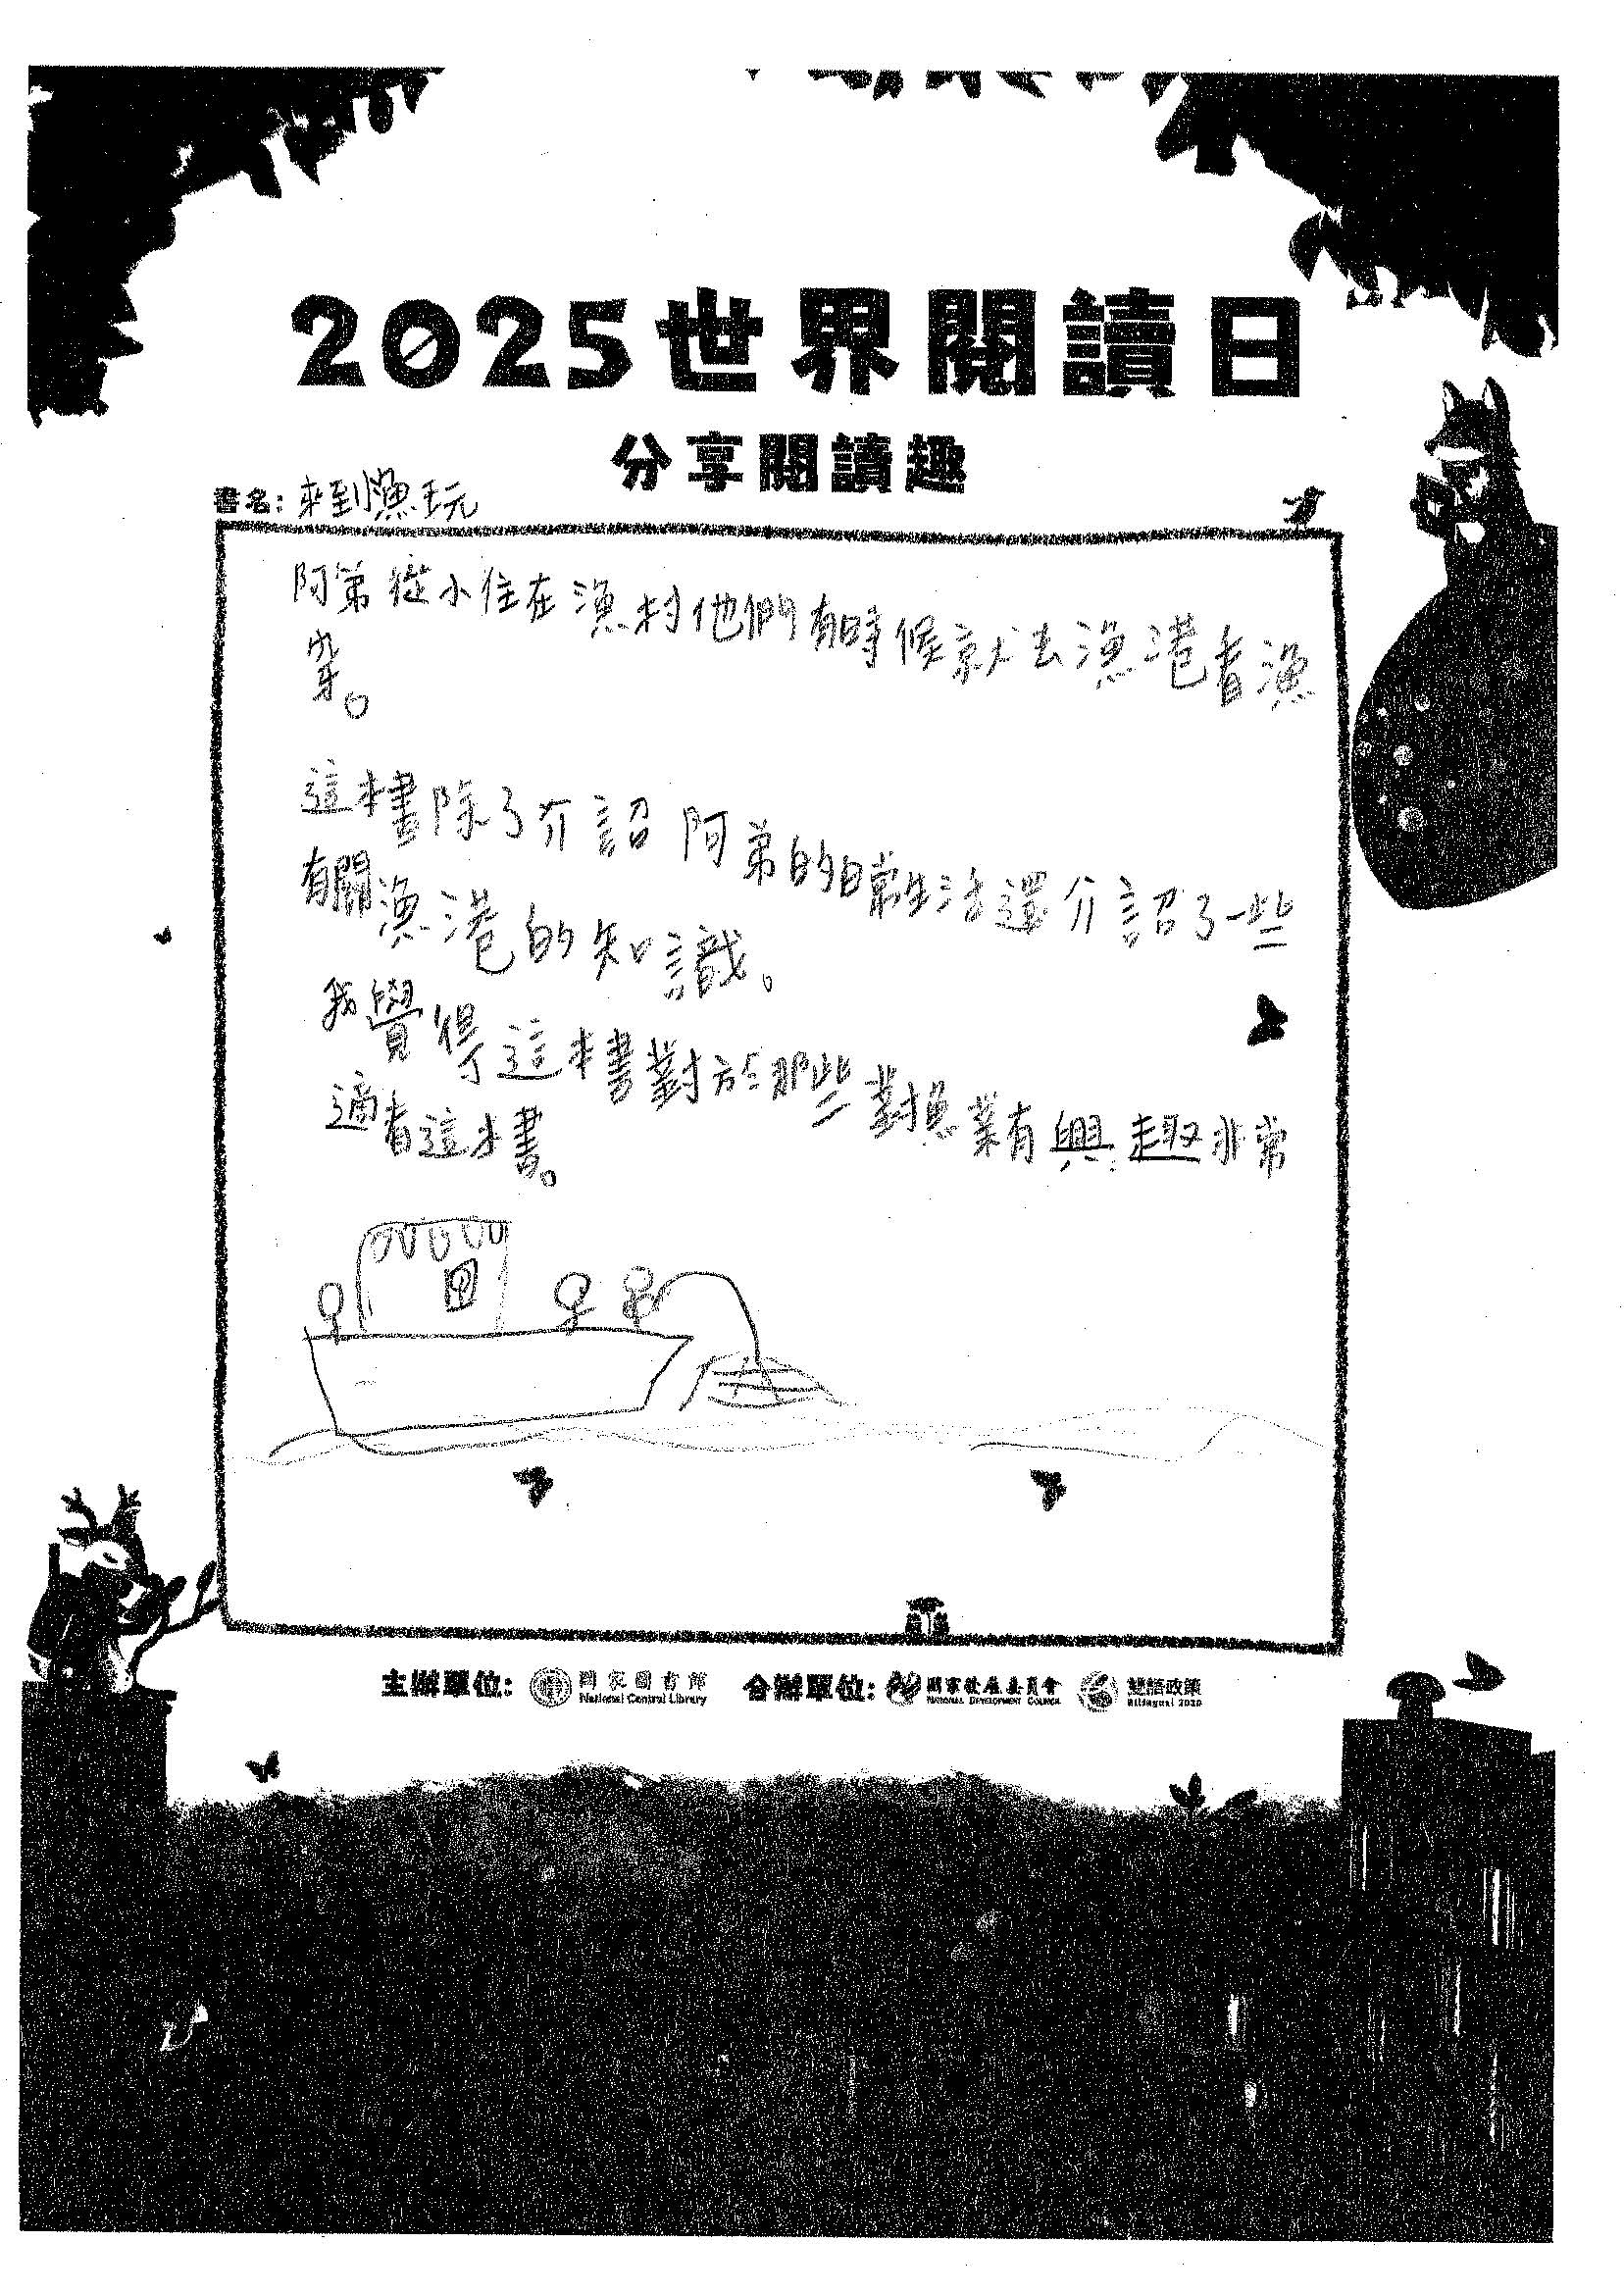 2025世界閱讀日
分享閱讀趣
書名: 來到漁玩
阿弟從小住在漁村他們有時候就去漁港看漁
穿。
這本書除了介詔阿弟的日常生活還介詔了一些
有關漁港的知識。
我覺得這本書對於那些對漁業有興趣非常
適看這本書。
主辦單位: 國家圖書館 National Central Library 合辦單位: 國家發展委員會 NATIONAL DEVELOPMENT COUNCIL 雙語政策 Bilingual 2030